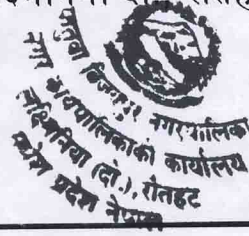 फतुवा विजयपुर नगरपालिका
नगर कार्यपालिकाको कार्यालय
लक्ष्मिनिया (दो.), रौतहट
मधेश प्रदेश नेपाल